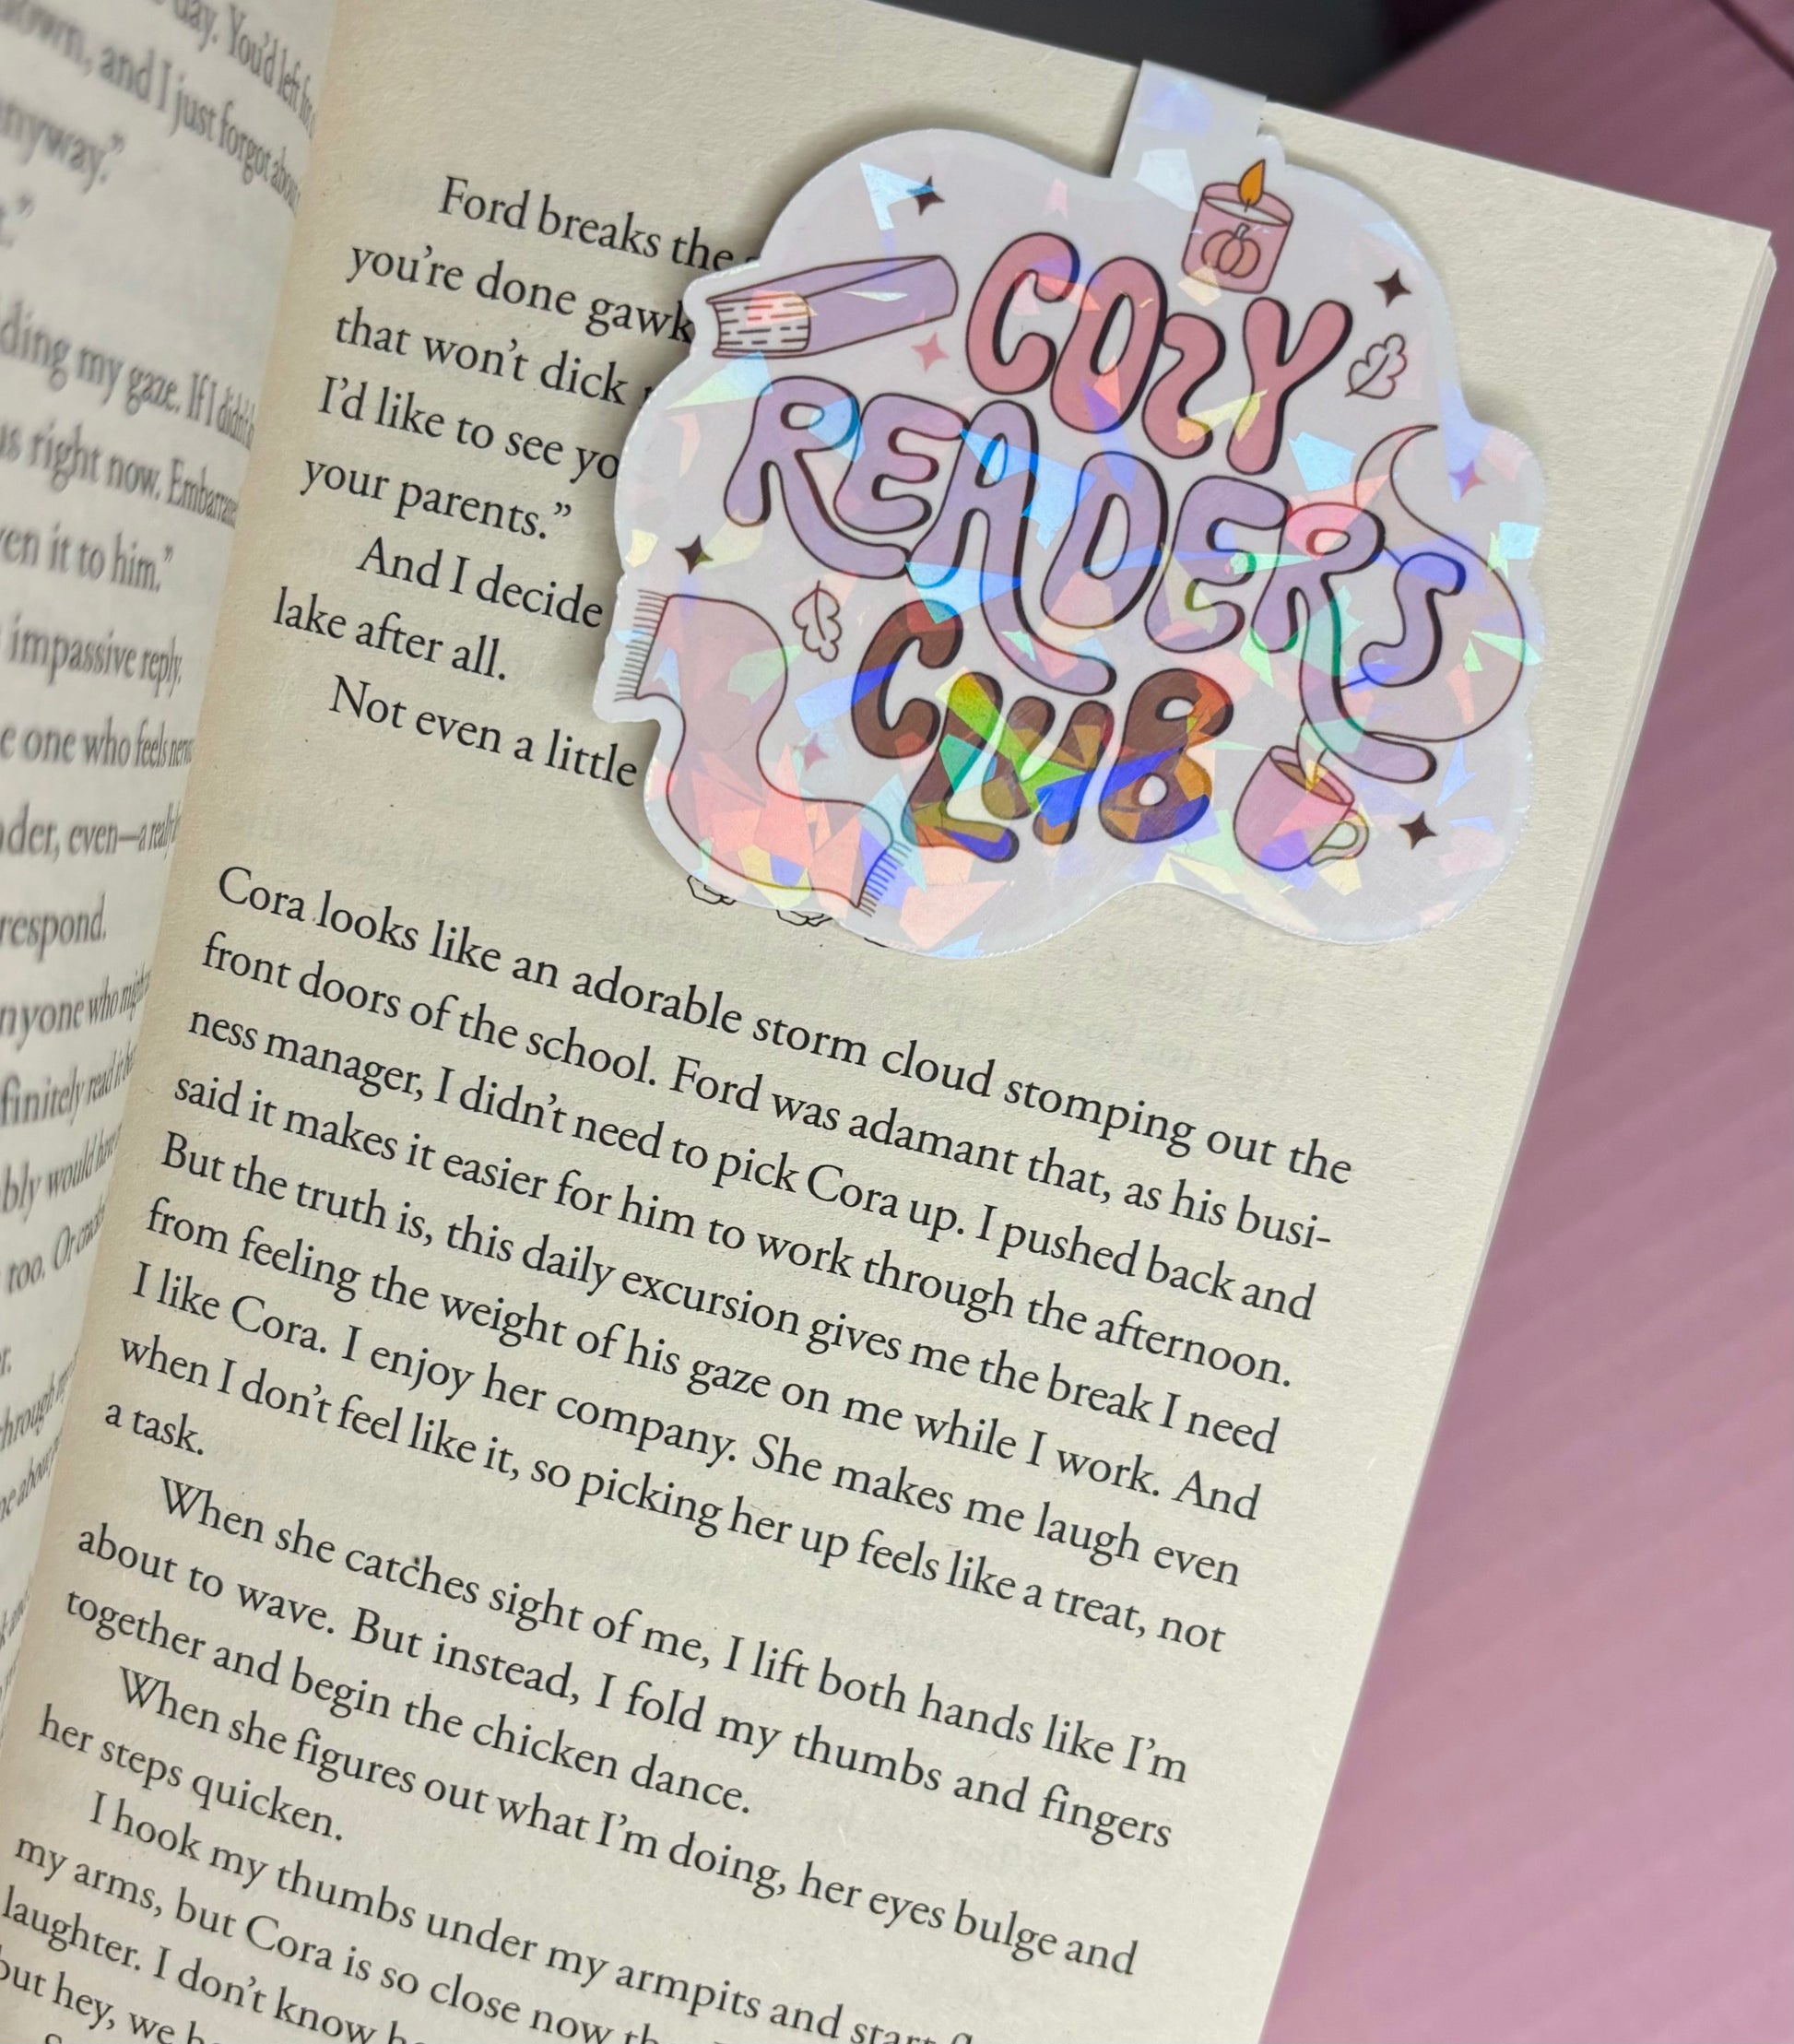 day. You'd left
town, and I just forgot about
anyway."
ding my gaze. If I didn't
us right now.
en it to him."
impassive reply.
e one who feels
der, even—a
respond.
nyone who
finitely read it
bly would have
too. Or
COZY
READERS
CLUB
Ford breaks the
you're done gawk
that won't dick
I'd like to see yo
your parents."
And I decide
lake after all.
Not even a little
Cora looks like an adorable storm cloud stomping out the
front doors of the school. Ford was adamant that, as his busi-
ness manager, I didn't need to pick Cora up. I pushed back and
said it makes it easier for him to work through the afternoon.
But the truth is, this daily excursion gives me the break I need
from feeling the weight of his gaze on me while I work. And
I like Cora. I enjoy her company. She makes me laugh even
when I don't feel like it, so picking her up feels like a treat, not
a task.
When she catches sight of me, I lift both hands like I'm
about to wave. But instead, I fold my thumbs and fingers
together and begin the chicken dance.
When she figures out what I'm doing, her eyes bulge and
her steps quicken.
I hook my thumbs under my armpits and start
my arms, but Cora is so close now
laughter. I don't know
but hey, we